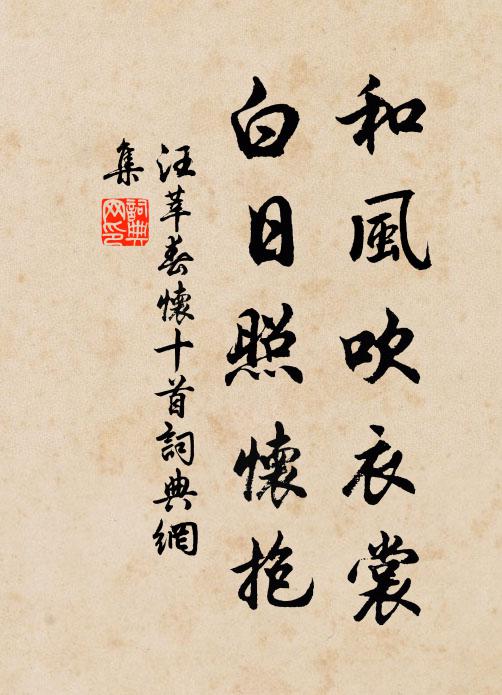 和風吹衣裳
白日照懷抱
汪莘春懷十首詞典網
集
詞典
网印